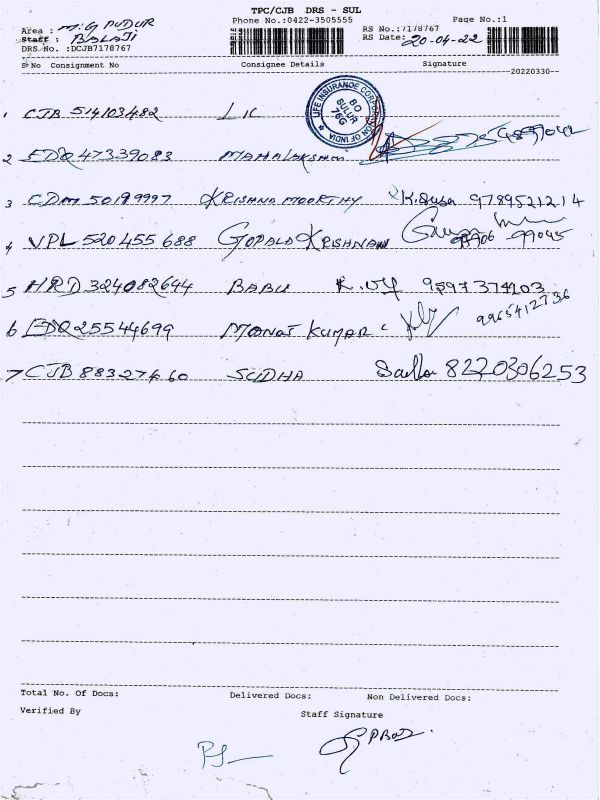 TPC/CJB DRS - SUL
Phone No.:0422-3505555
Page No.:1
Area : M.G PUDUR
Staff : BALAJI
DRS No. :DCJB7178767
RS No.:7178767
RS Date: 20-04-22
S No Consignment No Consignee Details Signature
20220330
1 CJB 514103482 LIC
LIFE INSURANCE CORPORATION OF INDIA
BO
SULUR
76G
2 EDQ 47339083 MAHALAKSHMI
3 CDM 50199997 KRISHNA MOORTHY 9789521214
4 VPL 520455688 GOPALA KRISHNAN
5 HRD 324082644 BABU 9597374103
6 EDQ 25544699 MANOJ KUMAR 9965412736
7 CJB 88327460 SUDHA 8220306253
Total No. Of Docs: Delivered Docs: Non Delivered Docs:
Verified By
Staff Signature